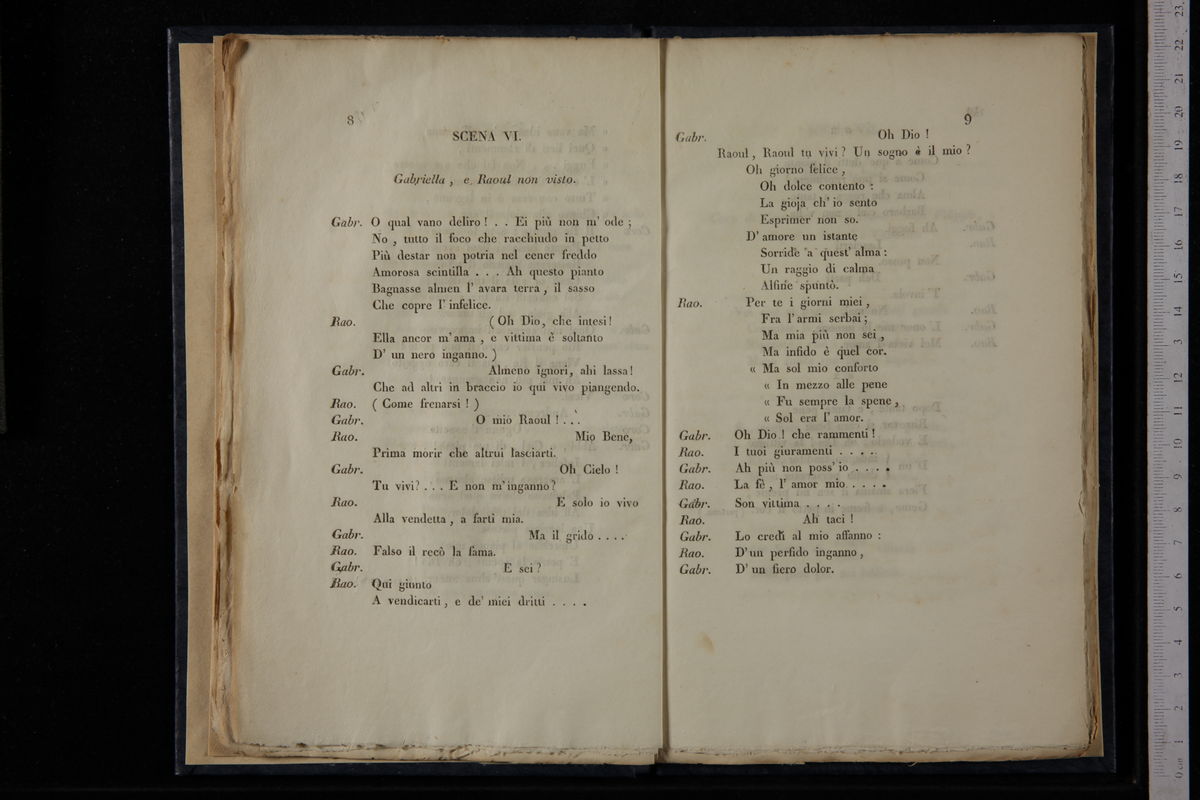 8
SCENA VI.
Gabriella , e Raoul non visto.
Gabr. O qual vano deliro ! . . Ei più non m' ode ;
No , tutto il foco che racchiudo in petto
Più destar non potria nel cener freddo
Amorosa scintilla . . . Ah questo pianto
Bagnasse almen l' avara terra , il sasso
Che copre l' infelice.
Rao. ( Oh Dio, che intesi !
Ella ancor m' ama , e vittima è soltanto
D' un nero inganno. )
Gabr. Almeno ignori, ahi lassa !
Che ad altri in braccio io qui vivo piangendo.
Rao. ( Come frenarsi ! )
Gabr. O mio Raoul ! . . .
Rao. Mio Bene,
Prima morir che altrui lasciarti.
Gabr. Oh Cielo !
Tu vivi ? . . . E non m' inganno ?
Rao. E solo io vivo
Alla vendetta , a farti mia.
Gabr. Ma il grido . . . .
Rao. Falso il recò la fama.
Gabr. E sei ?
Rao. Qui giunto
A vendicarti , e de' miei dritti . . . .
9
Gabr. Oh Dio !
Raoul , Raoul tu vivi ? Un sogno è il mio ?
Oh giorno felice ,
Oh dolce contento :
La gioja ch' io sento
Esprimer non so.
D' amore un istante
Sorride a quest' alma :
Un raggio di calma
Alfine spuntò.
Rao. Per te i giorni miei ,
Fra l' armi serbai ;
Ma mia più non sei ,
Ma infido è quel cor.
« Ma sol mio conforto
« In mezzo alle pene
« Fu sempre la spene ,
« Sol era l' amor.
Gabr. Oh Dio ! che rammenti !
Rao. I tuoi giuramenti . . . .
Gabr. Ah più non poss' io . . . .
Rao. La fè , l' amor mio . . . .
Gabr. Son vittima . . . .
Rao. Ah taci !
Gabr. Lo credi al mio affanno :
Rao. D' un perfido inganno ,
Gabr. D' un fiero dolor.
0 cm 1 2 3 4 5 6 7 8 9 10 11 12 13 14 15 16 17 18 19 20 21 22 23